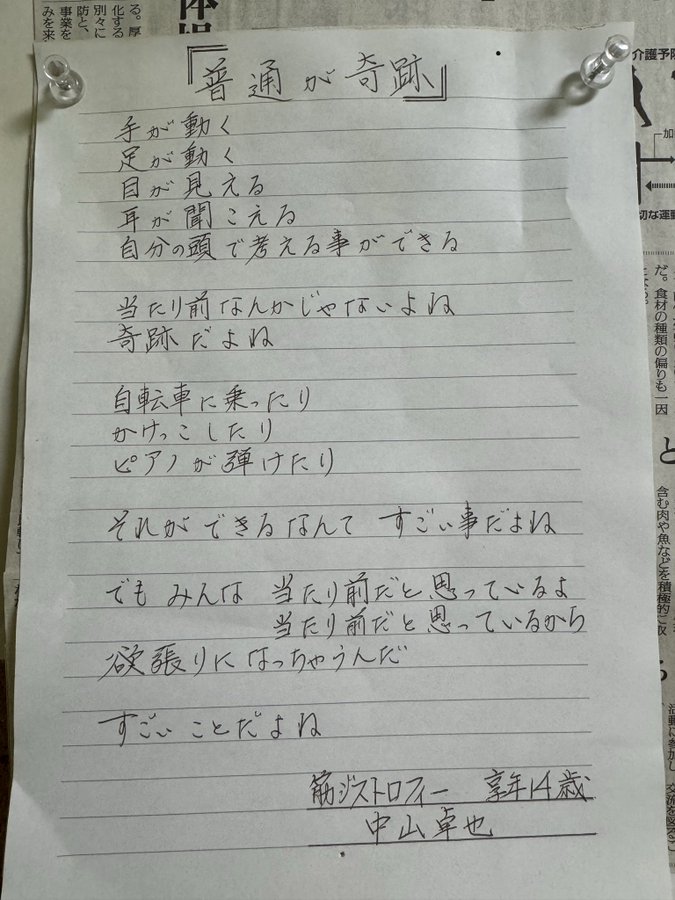 『普通が奇跡』
手が動く
足が動く
目が見える
耳が聞こえる
自分の頭で考える事ができる
当たり前なんかじゃないよね
奇跡だよね
自転車に乗ったり
かけっこしたり
ピアノが弾けたり
それができるなんて すごい事だよね
でも みんな 当たり前だと思っているよ
当たり前だと思っているから
欲張りになっちゃうんだ
すごいことだよね
筋ジストロフィー 享年14歳
中山卓也
る。厚
化する
別々に
防と、
事業を
みを来
介護予防
加
切な運動
だ。食材の種類の偏りも一因
と
含む肉や魚などを積極的に取
活動に参加し